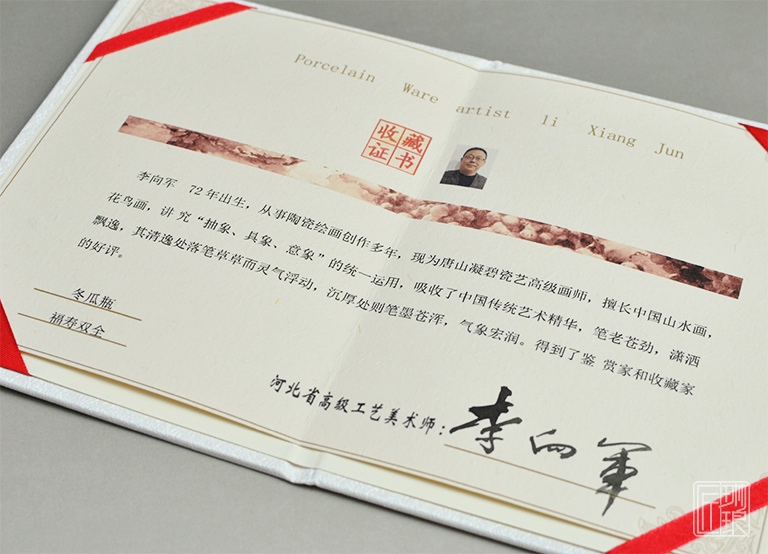 Porcelain Ware artist li Xiang Jun
收藏
证书
李向军 72年出生，从事陶瓷绘画创作多年，现为唐山凝碧瓷艺高级画师，擅长中国山水画，
花鸟画，讲究“抽象、具象、意象”的统一运用，吸收了中国传统艺术精华，笔老苍劲，潇洒
飘逸，其清逸处落笔草草而灵气浮动，沉厚处则笔墨苍浑，气象宏润。得到了鉴 赏家和收藏家
的好评。
冬瓜瓶
福寿双全
河北省高级工艺美术师：李向军